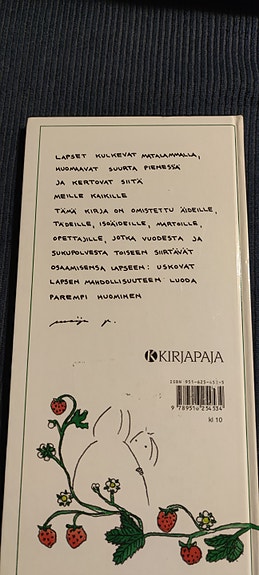 LAPSET KULKEVAT MATALAMMALLA,
HUOMAAVAT SUURTA PIENESSÄ
JA KERTOVAT SIITÄ
MEILLE KAIKILLE
TÄMÄ KIRJA ON OMISTETTU ÄIDEILLE,
TÄDEILLE, ISOÄIDEILLE, MARTOILLE,
OPETTAJILLE, JOTKA VUODESTA JA
SUKUPOLVESTA TOISEEN SIIRTÄVÄT
OSAAMISENSA LAPSEEN: USKOVAT
LAPSEN MAHDOLLISUUTEEN LUODA
PAREMPI HUOMINEN
KIRJAPAJA
ISBN 951-625-453-5
9 789516 254534
kl 10